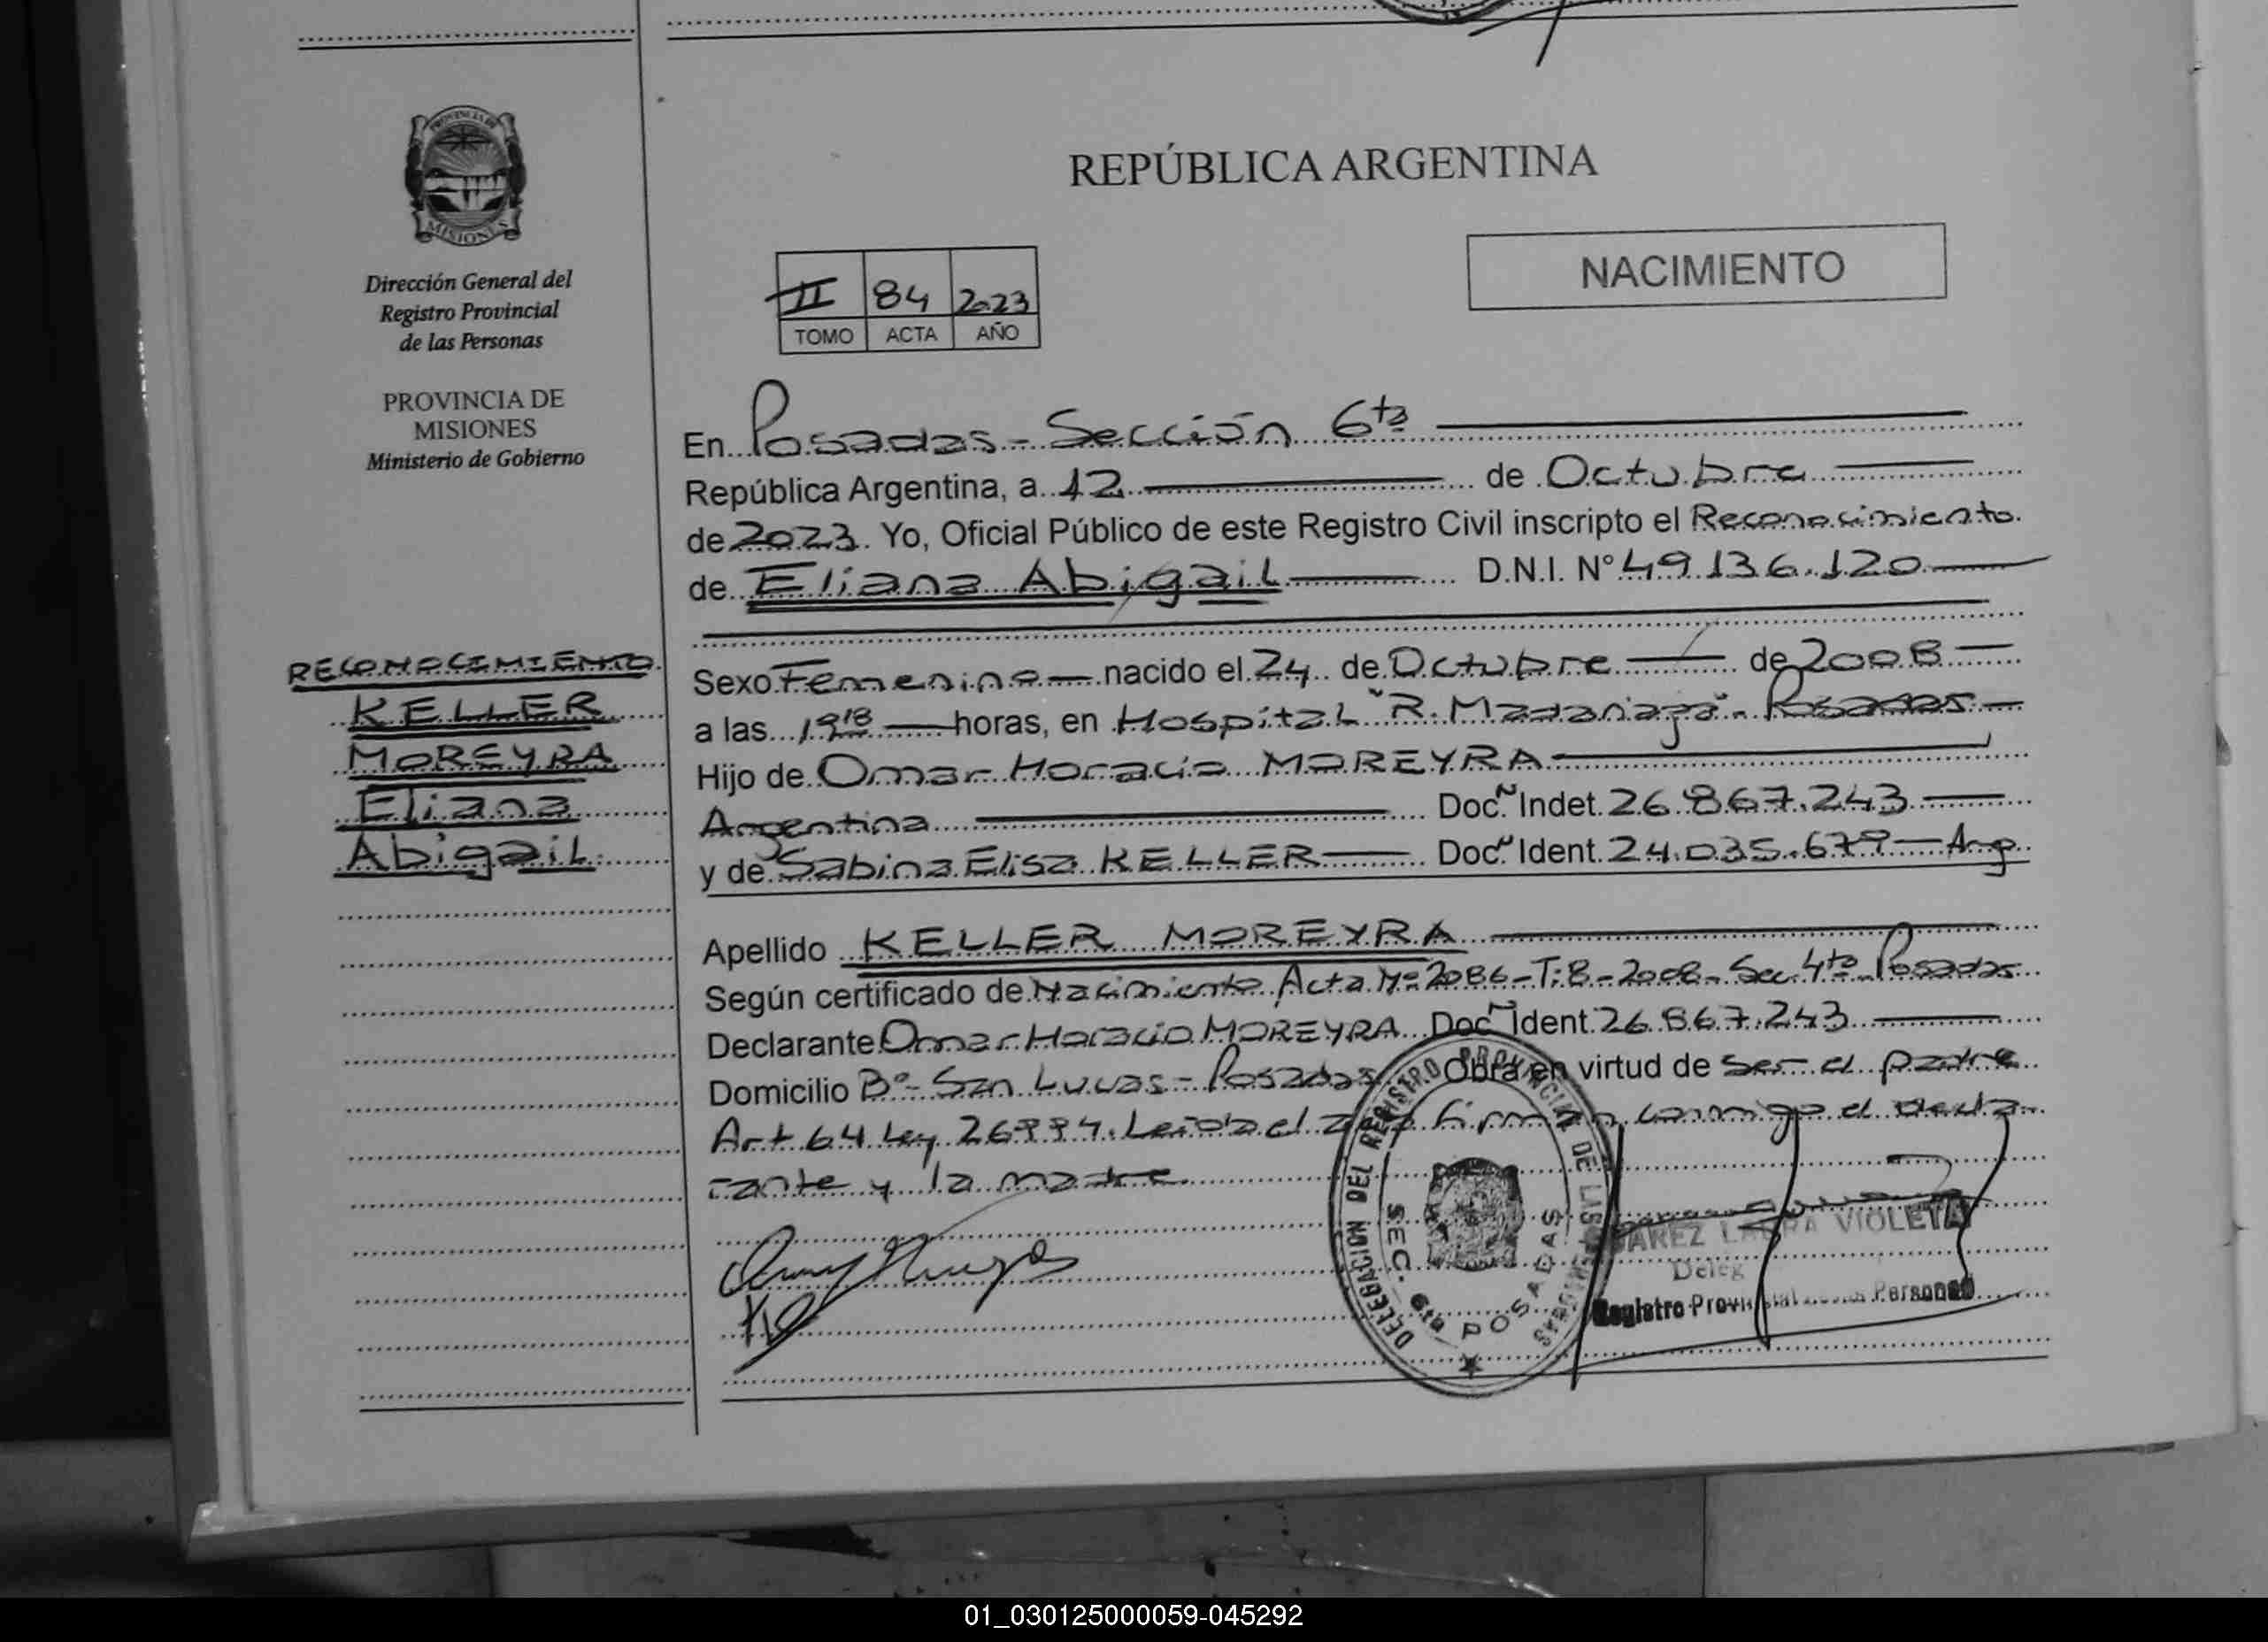 PROVINCIA DE
MISIONES
Dirección General del
Registro Provincial
de las Personas
PROVINCIA DE
MISIONES
Ministerio de Gobierno
RECONOCIMIENTO
KELLER
MOREYRA
Eliana
Abigail
REPÚBLICA ARGENTINA
NACIMIENTO
II 84 2023
TOMO ACTA AÑO
En Posadas - Sección 6ta
República Argentina, a 12 de Octubre
de 2023. Yo, Oficial Público de este Registro Civil inscripto el Reconocimiento
de Eliana Abigail D.N.I. N° 49.136.120
Sexo Femenino nacido el 24 de Octubre de 2008
a las 19 18 horas, en Hospital "R. Madariaga" - Posadas
Hijo de Omar Horacio MOREYRA
Argentina Doc. Indet. 26.867.243
y de Sabina Elisa KELLER Doc. Ident. 24.035.679 Arg
Apellido KELLER MOREYRA
Según certificado de Nacimiento Acta Nº 2086 - T: 8 - 2008 - Sec. 4ta Posadas
Declarante Omar Horacio MOREYRA Doc. Ident. 26.867.243
Domicilio Bº San Lucas - Posadas Obra en virtud de ser el padre
Art 64 Ley 26994. Leída el firman conmigo el decla-
rante y la madre.
DELEGACION DEL REGISTRO PROVINCIAL DE LAS PERSONAS
SEC. 6ta POSADAS
LAURA VIOLETA
Deleg
Registro Provincial Personas
01_030125000059-045292